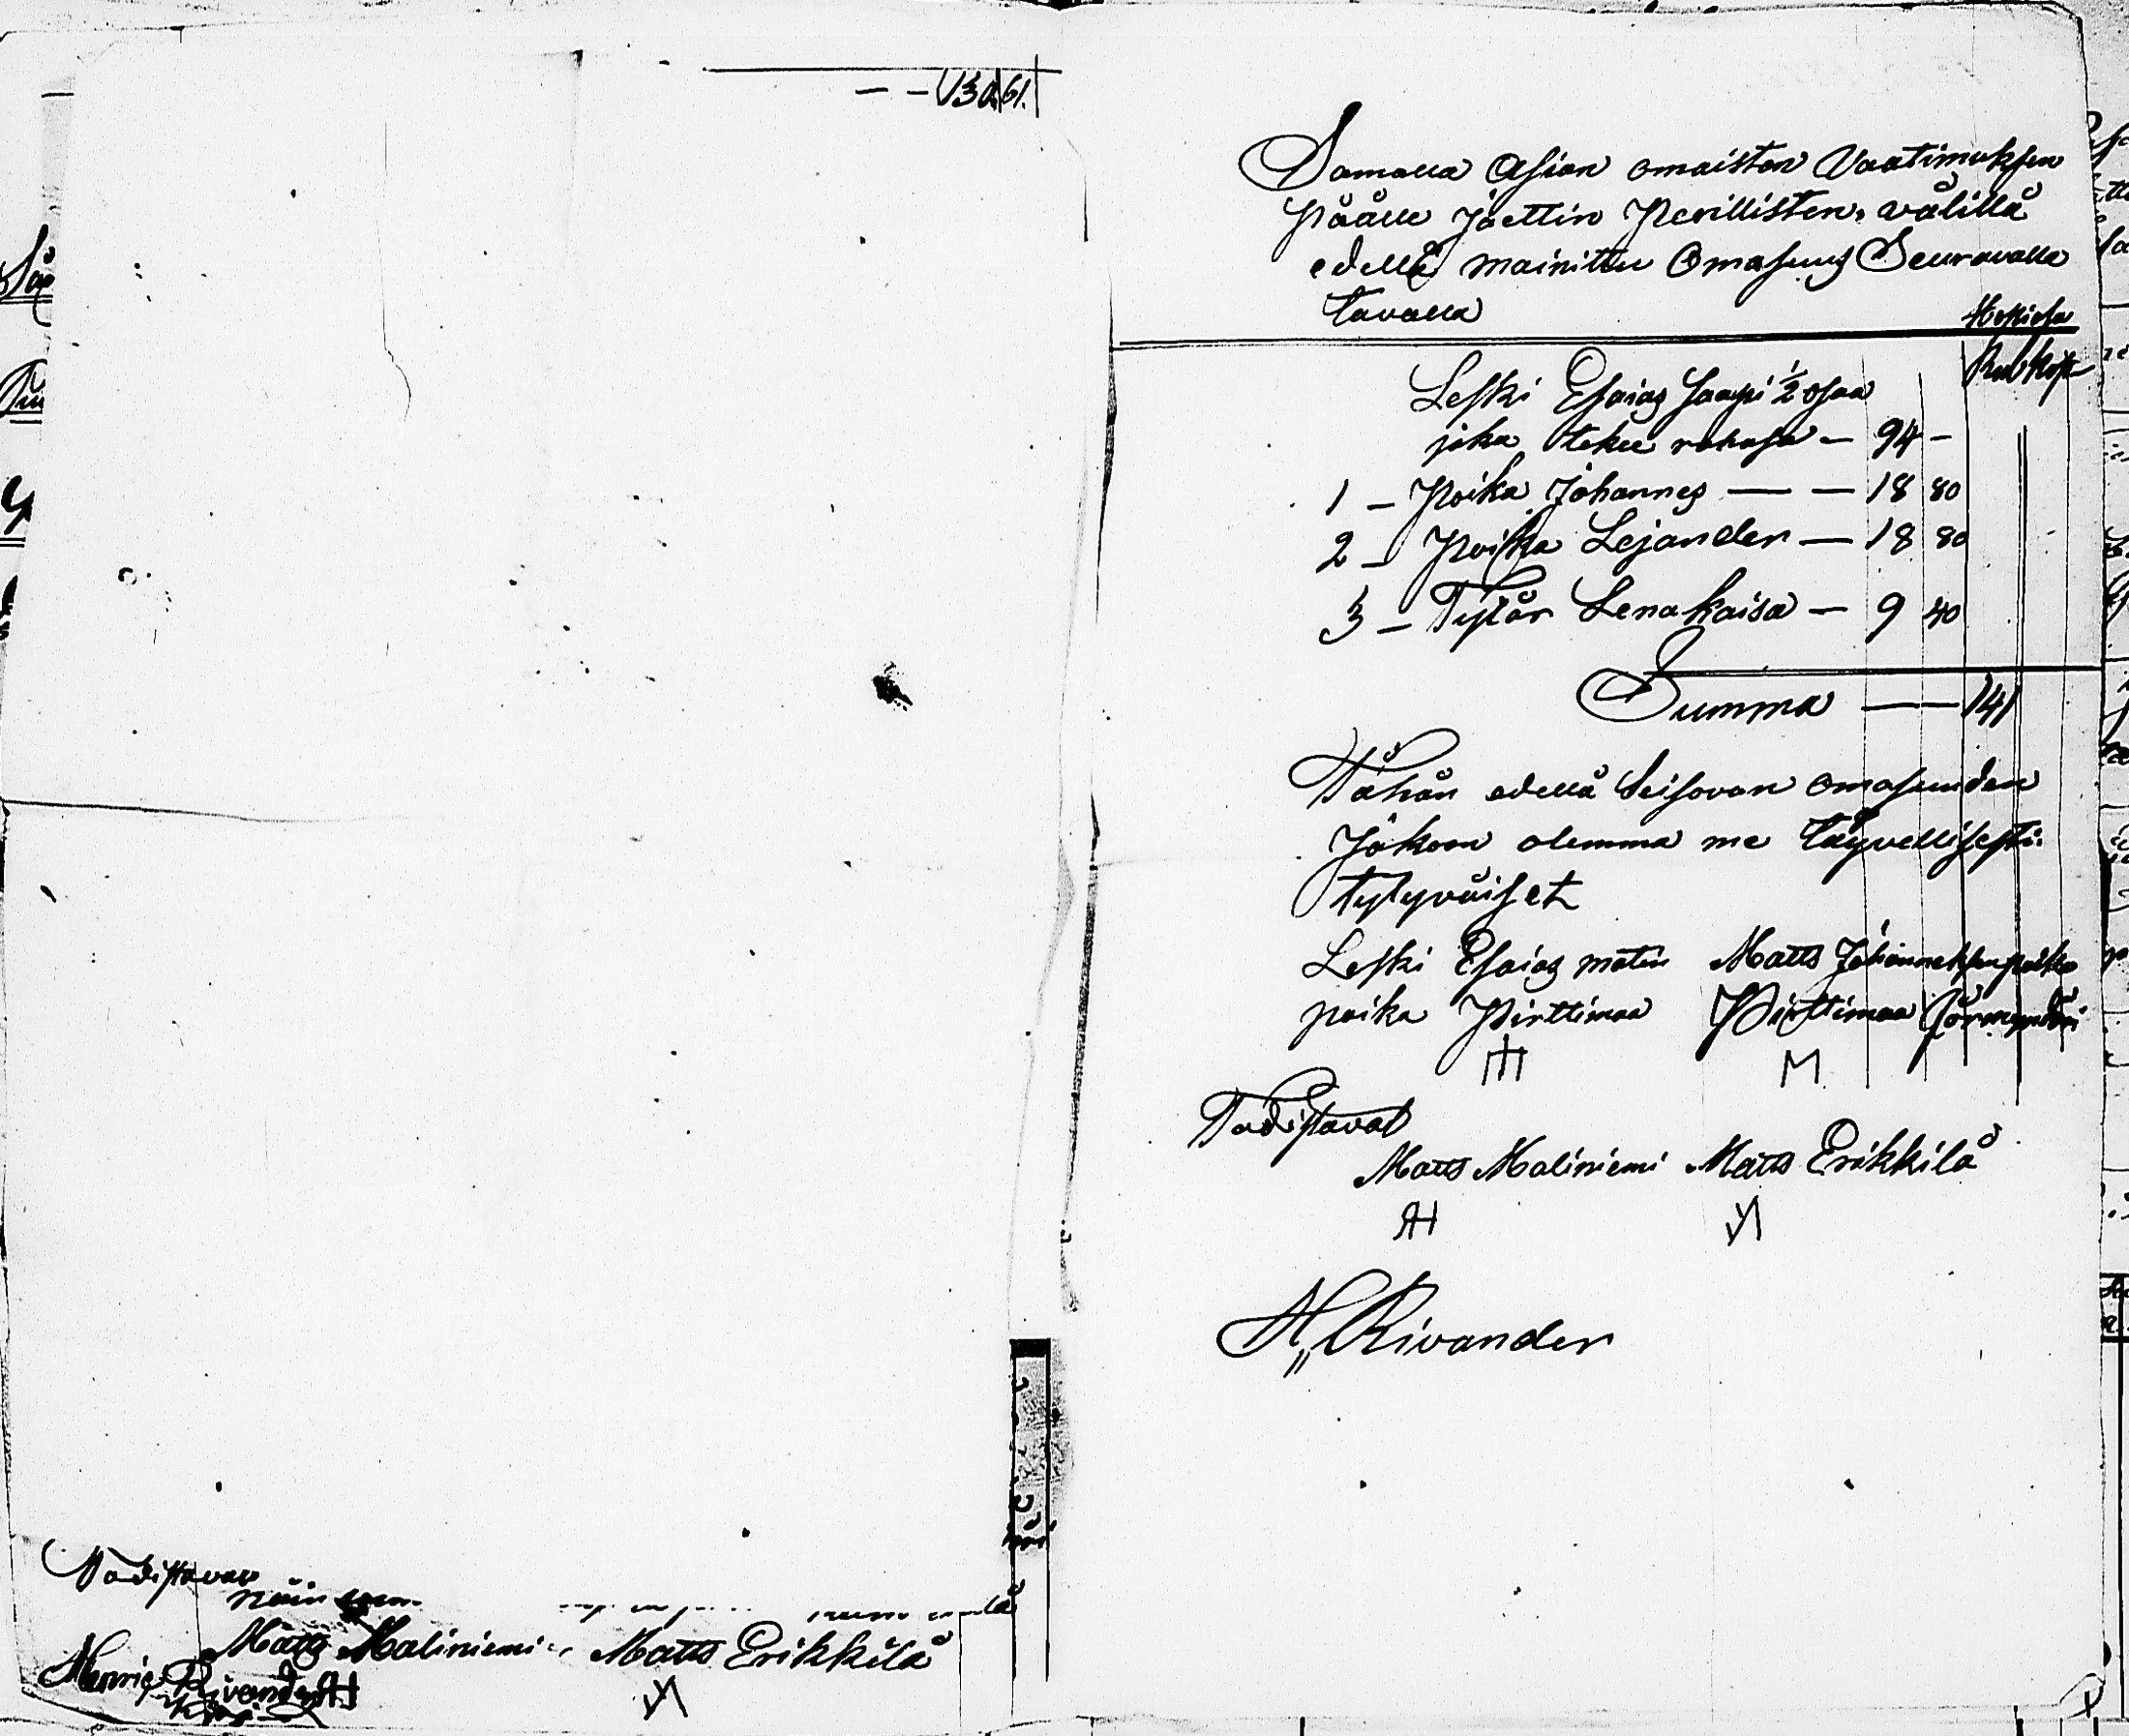 130 61.
Samalla Asian omaisten Vaatimuksen
päälle Jaettin Perillisten välillä
edellä mainittu Omasuus Seuravalla
tavalla
Rub kop
Leski Esaias saapi 1/2 osaa
joka tekee rahasa — 94 —
1 — Poika Johannes — — 18 80
2 — Poika Lejander — 18 80
3 — Tytär Lenakaisa — 9 40
Summa — 141
Tähän edellä Seisovan omasuuden
Jakoon olemma me täyvellisesti
tytyväiset
Leski Esaias matin Matts Johanneksenpoika
poika Pirttimaa Pirttimaa Förmyndäri
M
Todistavat
Matts Maliniemi Matts Erikkilä
H,, Rivander
Todistavat
Matts Maliniemi Matts Erikkilä
Henrig Rivander